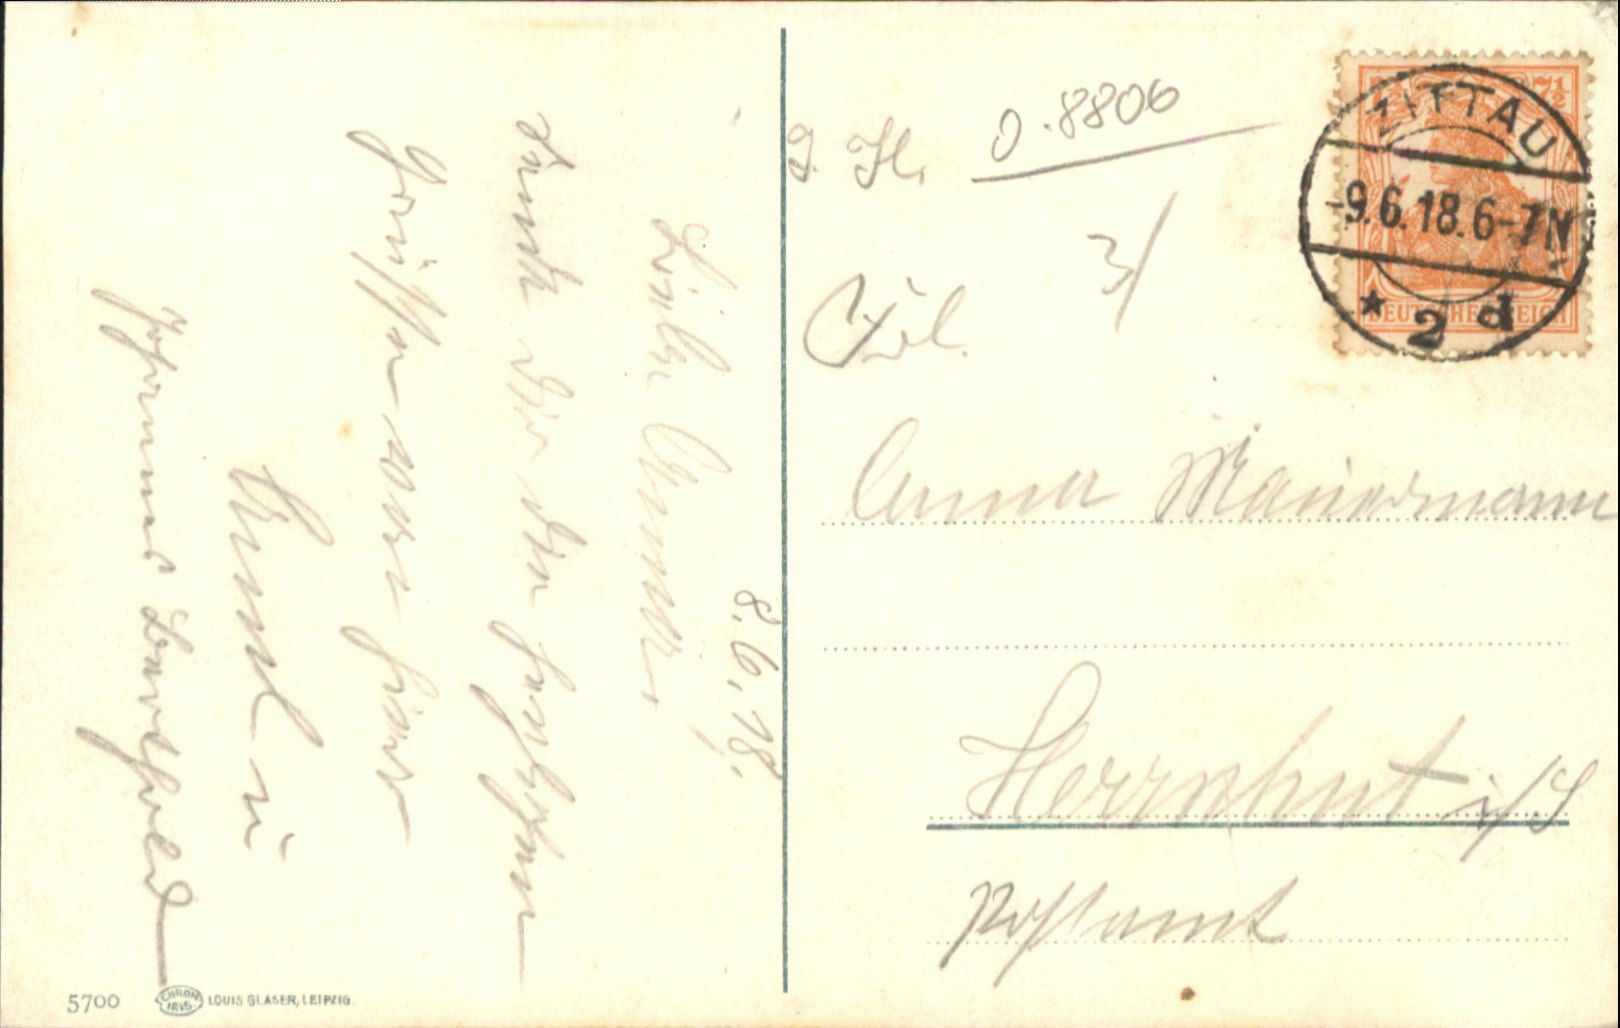 8.6.18.
Liebe Anna,
sende Dir die herzl.
Grüße von hier
Arnold u
Johannes Berthold
O.8806
3/
ZITTAU
-9.6.18.6-7N
* 2 d
7½
DEUTSCHES REICH
Anna Mauermann
Herrnhut i/S
Postamt
5700 CHROM IRIS LOUIS GLASER, LEIPZIG.